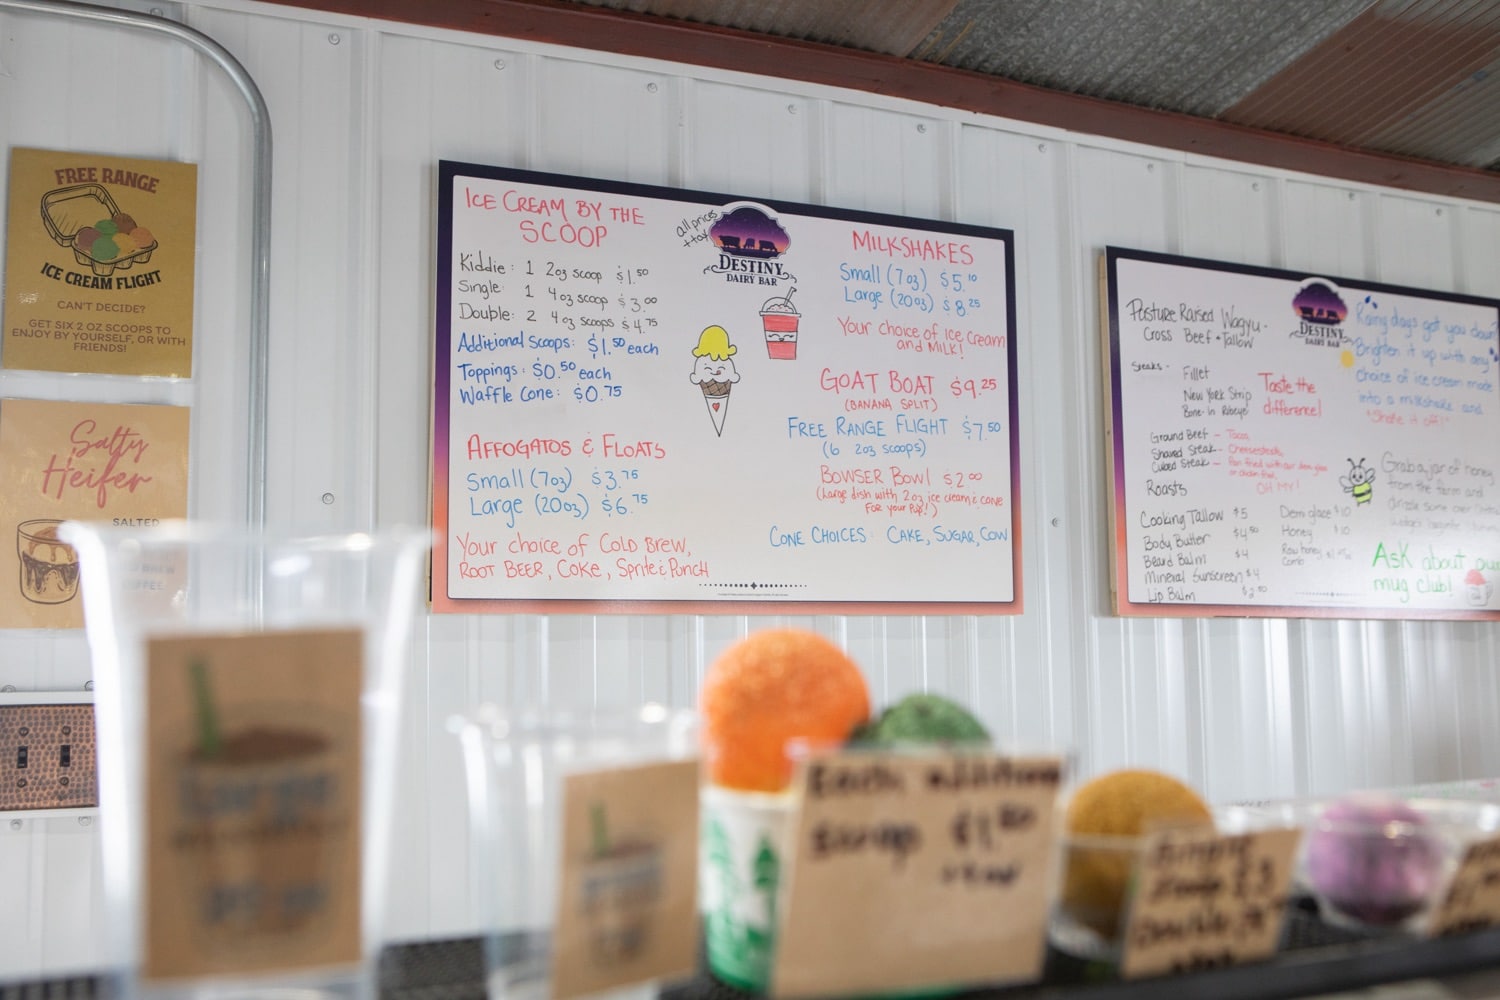 FREE RANGE
ICE CREAM FLIGHT
CAN'T DECIDE?
GET SIX 2 OZ SCOOPS TO
ENJOY BY YOURSELF, OR WITH
FRIENDS!
Salty
Heifer
SALTED
ICE CREAM BY THE
SCOOP
Kiddie: 1 2oz scoop $1.50
Single: 1 4oz scoop $3.00
Double: 2 4oz scoops $4.75
Additional Scoops: $1.50 each
Toppings: $0.50 each
Waffle Cone: $0.75
AFFOGATOS & FLOATS
Small (7oz) $3.75
Large (20oz) $6.75
Your choice of COLD BREW,
ROOT BEER, COKE, Sprite & Punch
all prices
+tax
DESTINY
DAIRY BAR
MILKSHAKES
Small (7oz) $5.10
Large (20oz) $8.25
Your choice of Ice Cream
and MILK!
GOAT BOAT $9.25
(BANANA SPLIT)
FREE RANGE FLIGHT $7.50
(6 2oz scoops)
BOWSER BOWL $2.00
(Large dish with 2oz ice cream & cone
FOR your Pup!)
CONE CHOICES: CAKE, SUGAR, COW
Pasture Raised Wagyu-
Cross Beef + Tallow
Steaks -
Fillet
New York Strip
Bone-In Ribeye
Taste the
difference!
Ground Beef - Tacos
Shaved Steak - Cheesesteaks
Cubed Steak -
OH MY!
Roasts
Cooking Tallow $5
Body Butter $4.50
Beard Balm $4
Mineral Sunscreen $4
Lip Balm $2.50
Demi glace $10
Honey $10
Raw honey
Comb
DESTINY
DAIRY BAR
Rainy days got you down?
Brighten it up with any
choice of ice cream made
into a milkshake and
"Shake it off!"
Grab a jar of honey
from the farm and
drizzle some over
Ask about our
mug club!
Each additional
scoop $1.50
Single
Scoop $3
Double